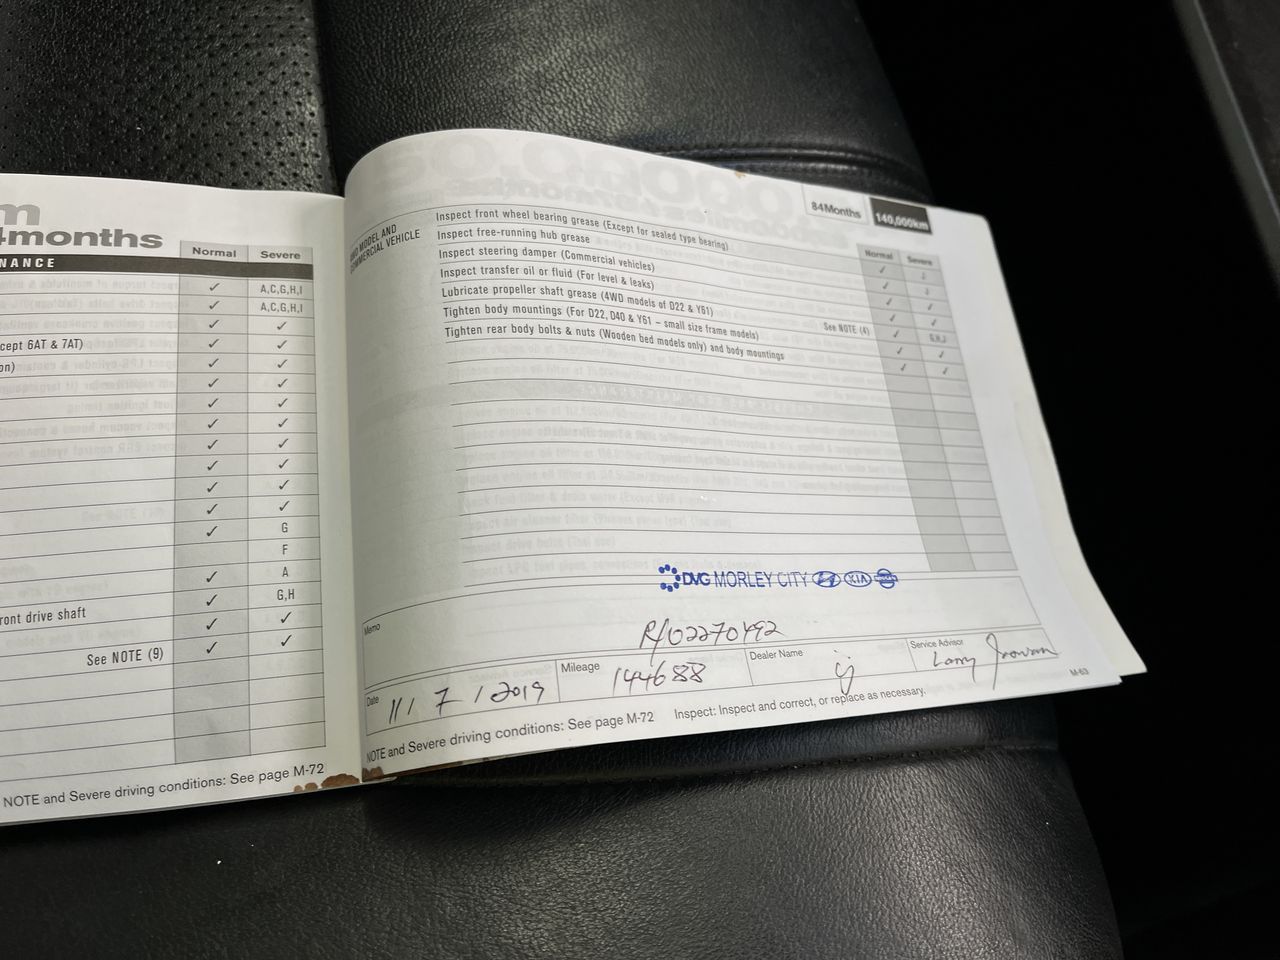 m
4months
NANCE
Normal Severe
✓ A,C,G,H,I
✓ A,C,G,H,I
✓ ✓
cept 6AT & 7AT) ✓ ✓
on) ✓ ✓
✓ ✓
✓ ✓
✓ ✓
✓ ✓
✓ ✓
✓ ✓
✓ G
F
✓ A
✓ G,H
ront drive shaft ✓ ✓
See NOTE (9) ✓ ✓
NOTE and Severe driving conditions: See page M-72
84Months 140,000km
4WD MODEL AND
COMMERCIAL VEHICLE
Normal Severe
Inspect front wheel bearing grease (Except for sealed type bearing) ✓ ✓
Inspect free-running hub grease ✓ ✓
Inspect steering damper (Commercial vehicles) ✓ ✓
Inspect transfer oil or fluid (For level & leaks) ✓ ✓
Lubricate propeller shaft grease (4WD models of D22 & Y61) See NOTE (4) ✓ G,H,I
Tighten body mountings (For D22, D40 & Y61 – small size frame models) ✓ ✓
Tighten rear body bolts & nuts (Wooden bed models only) and body mountings ✓ ✓
DVG MORLEY CITY KIA
Memo
R/02270492
Date 11/7/2019
Mileage 144688
Dealer Name
Service Advisor Larry
NOTE and Severe driving conditions: See page M-72 Inspect: Inspect and correct, or replace as necessary.
M-63